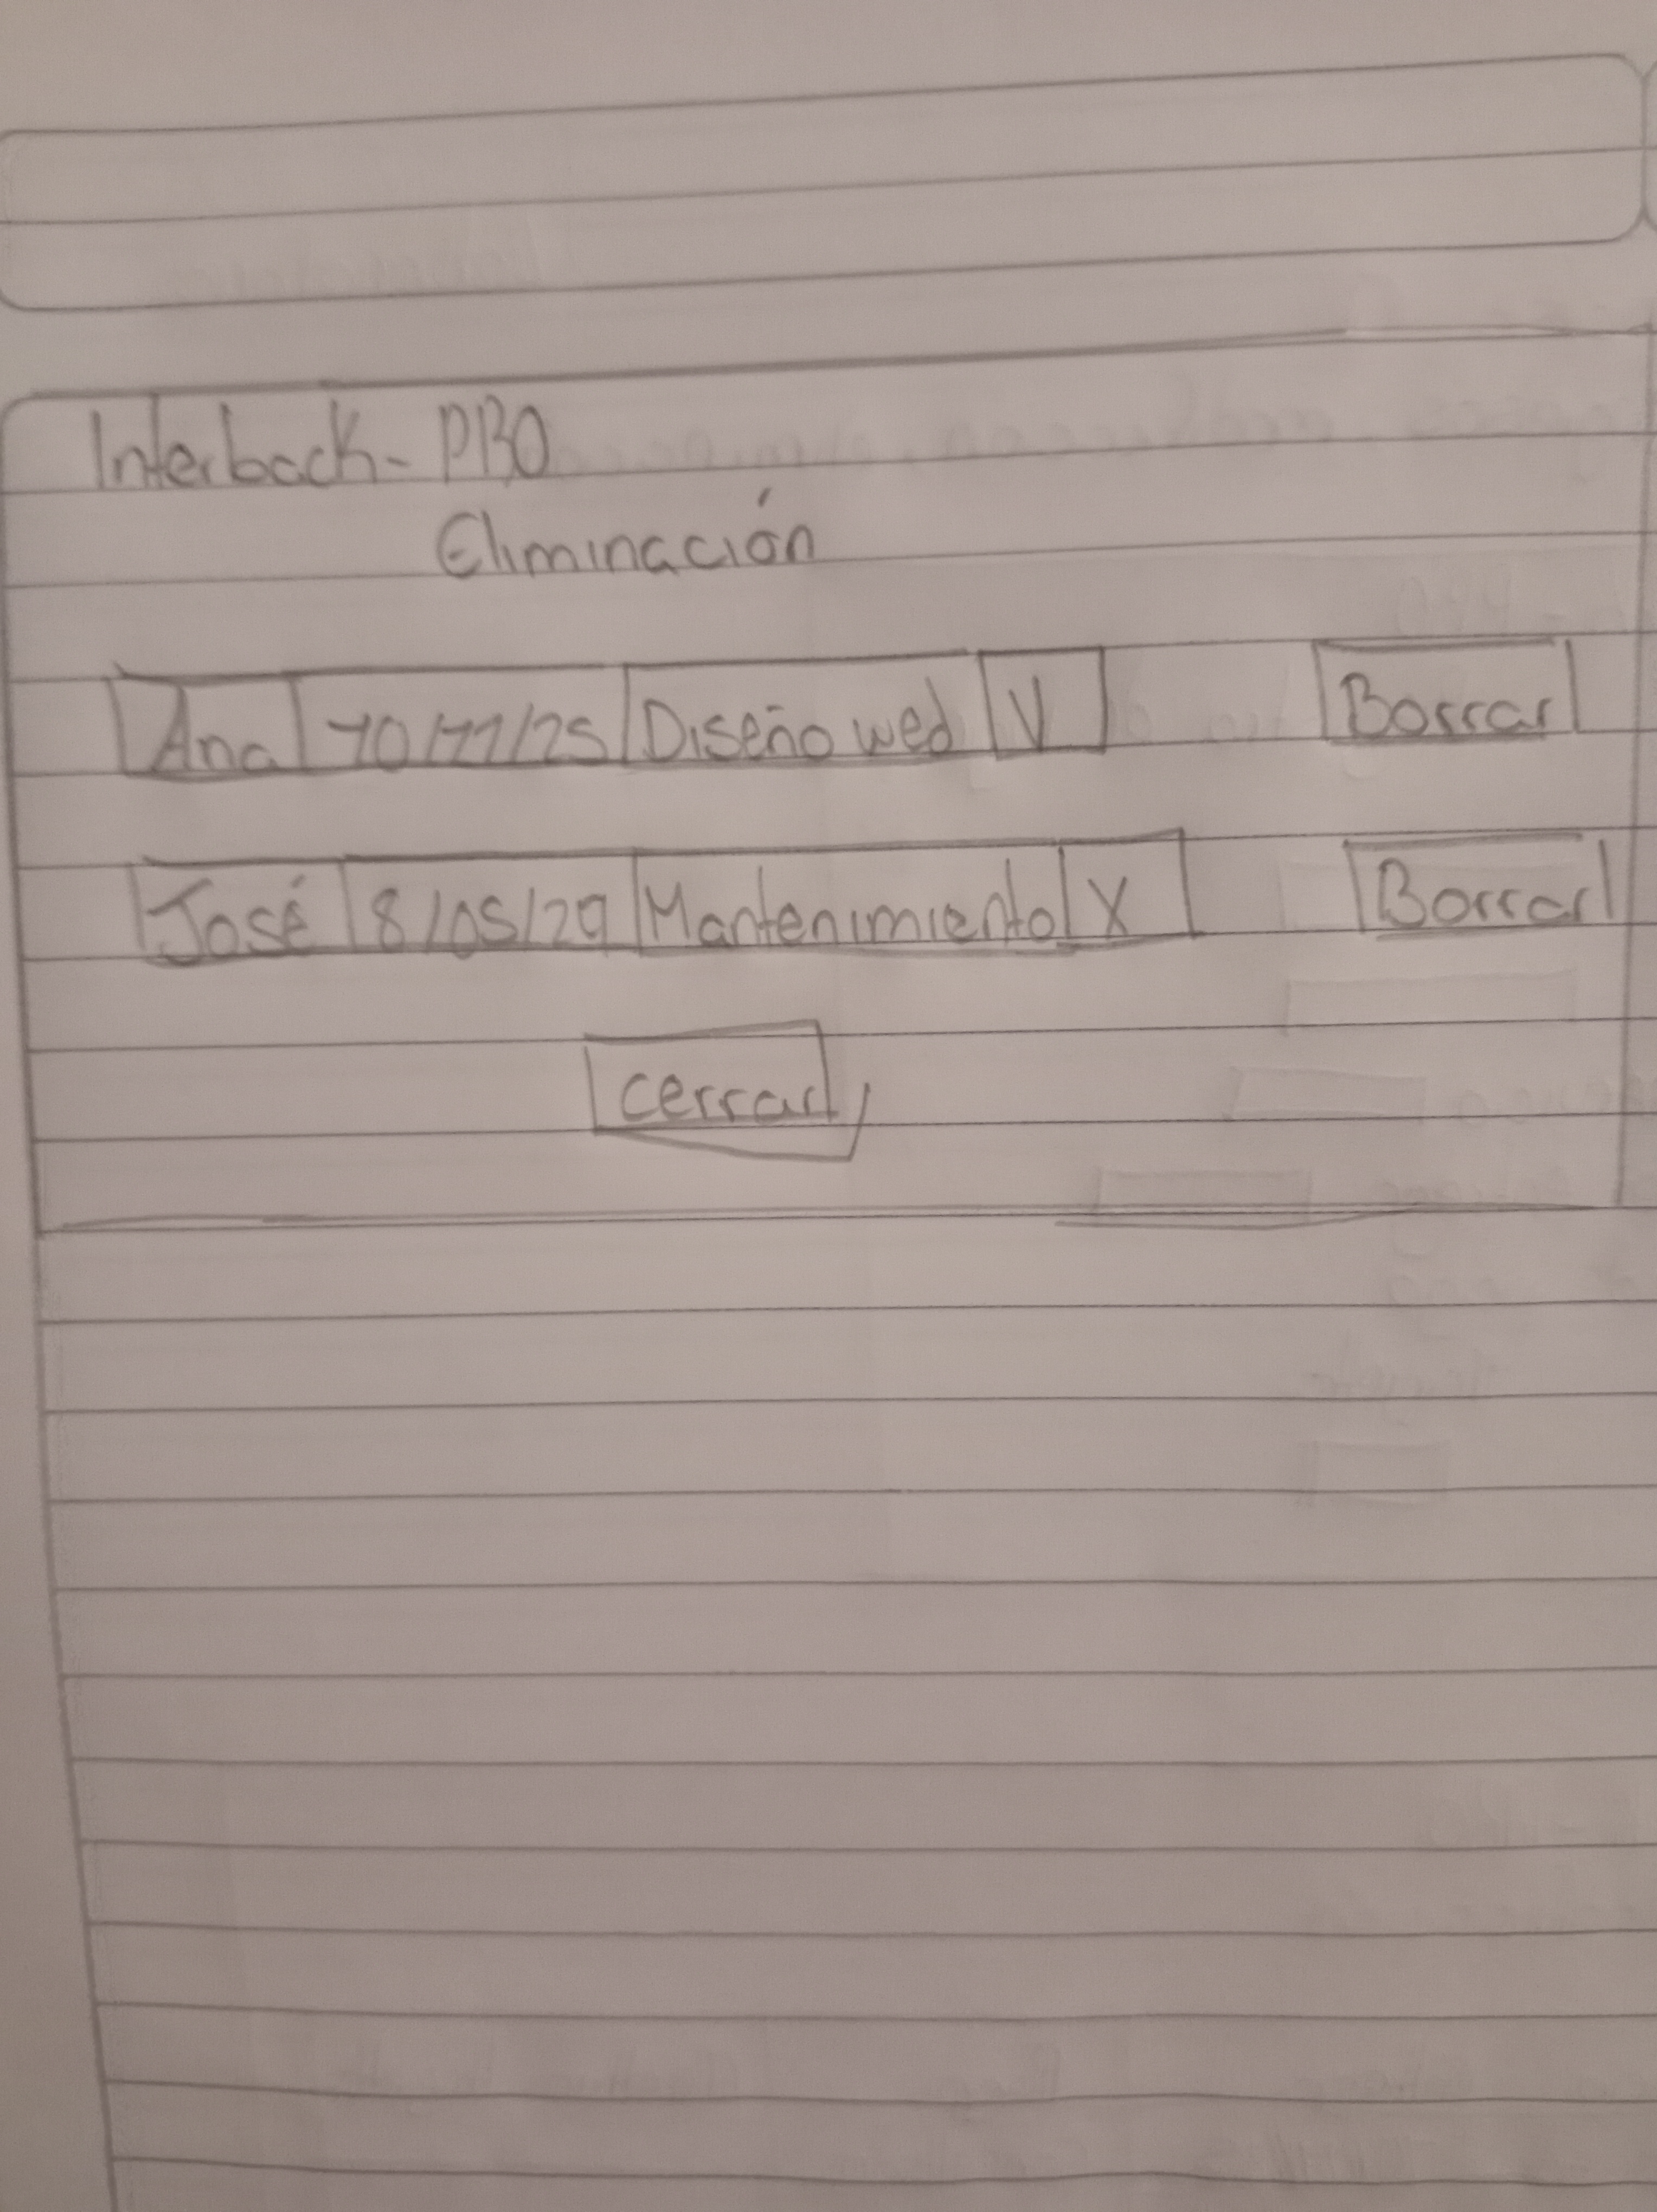 Interback - PBO
Eliminación
Ana 10/11/25 Diseño wed V Borrar
José 8/05/29 Mantenimiento X Borrar
cerrar